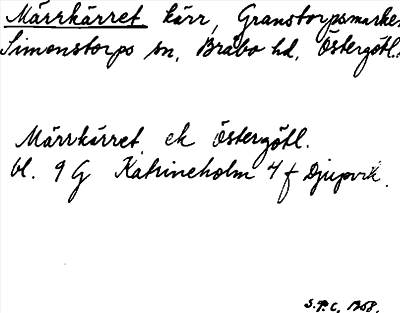 Märrkärret kärr, Granstorpsmarken
Simonstorps sn, Bråbo hd, Östergötl.
Märrkärret. ek Östergötl.
bl. 9 G Katrineholm 4 f Djupvik.
S.P.C. 1958.